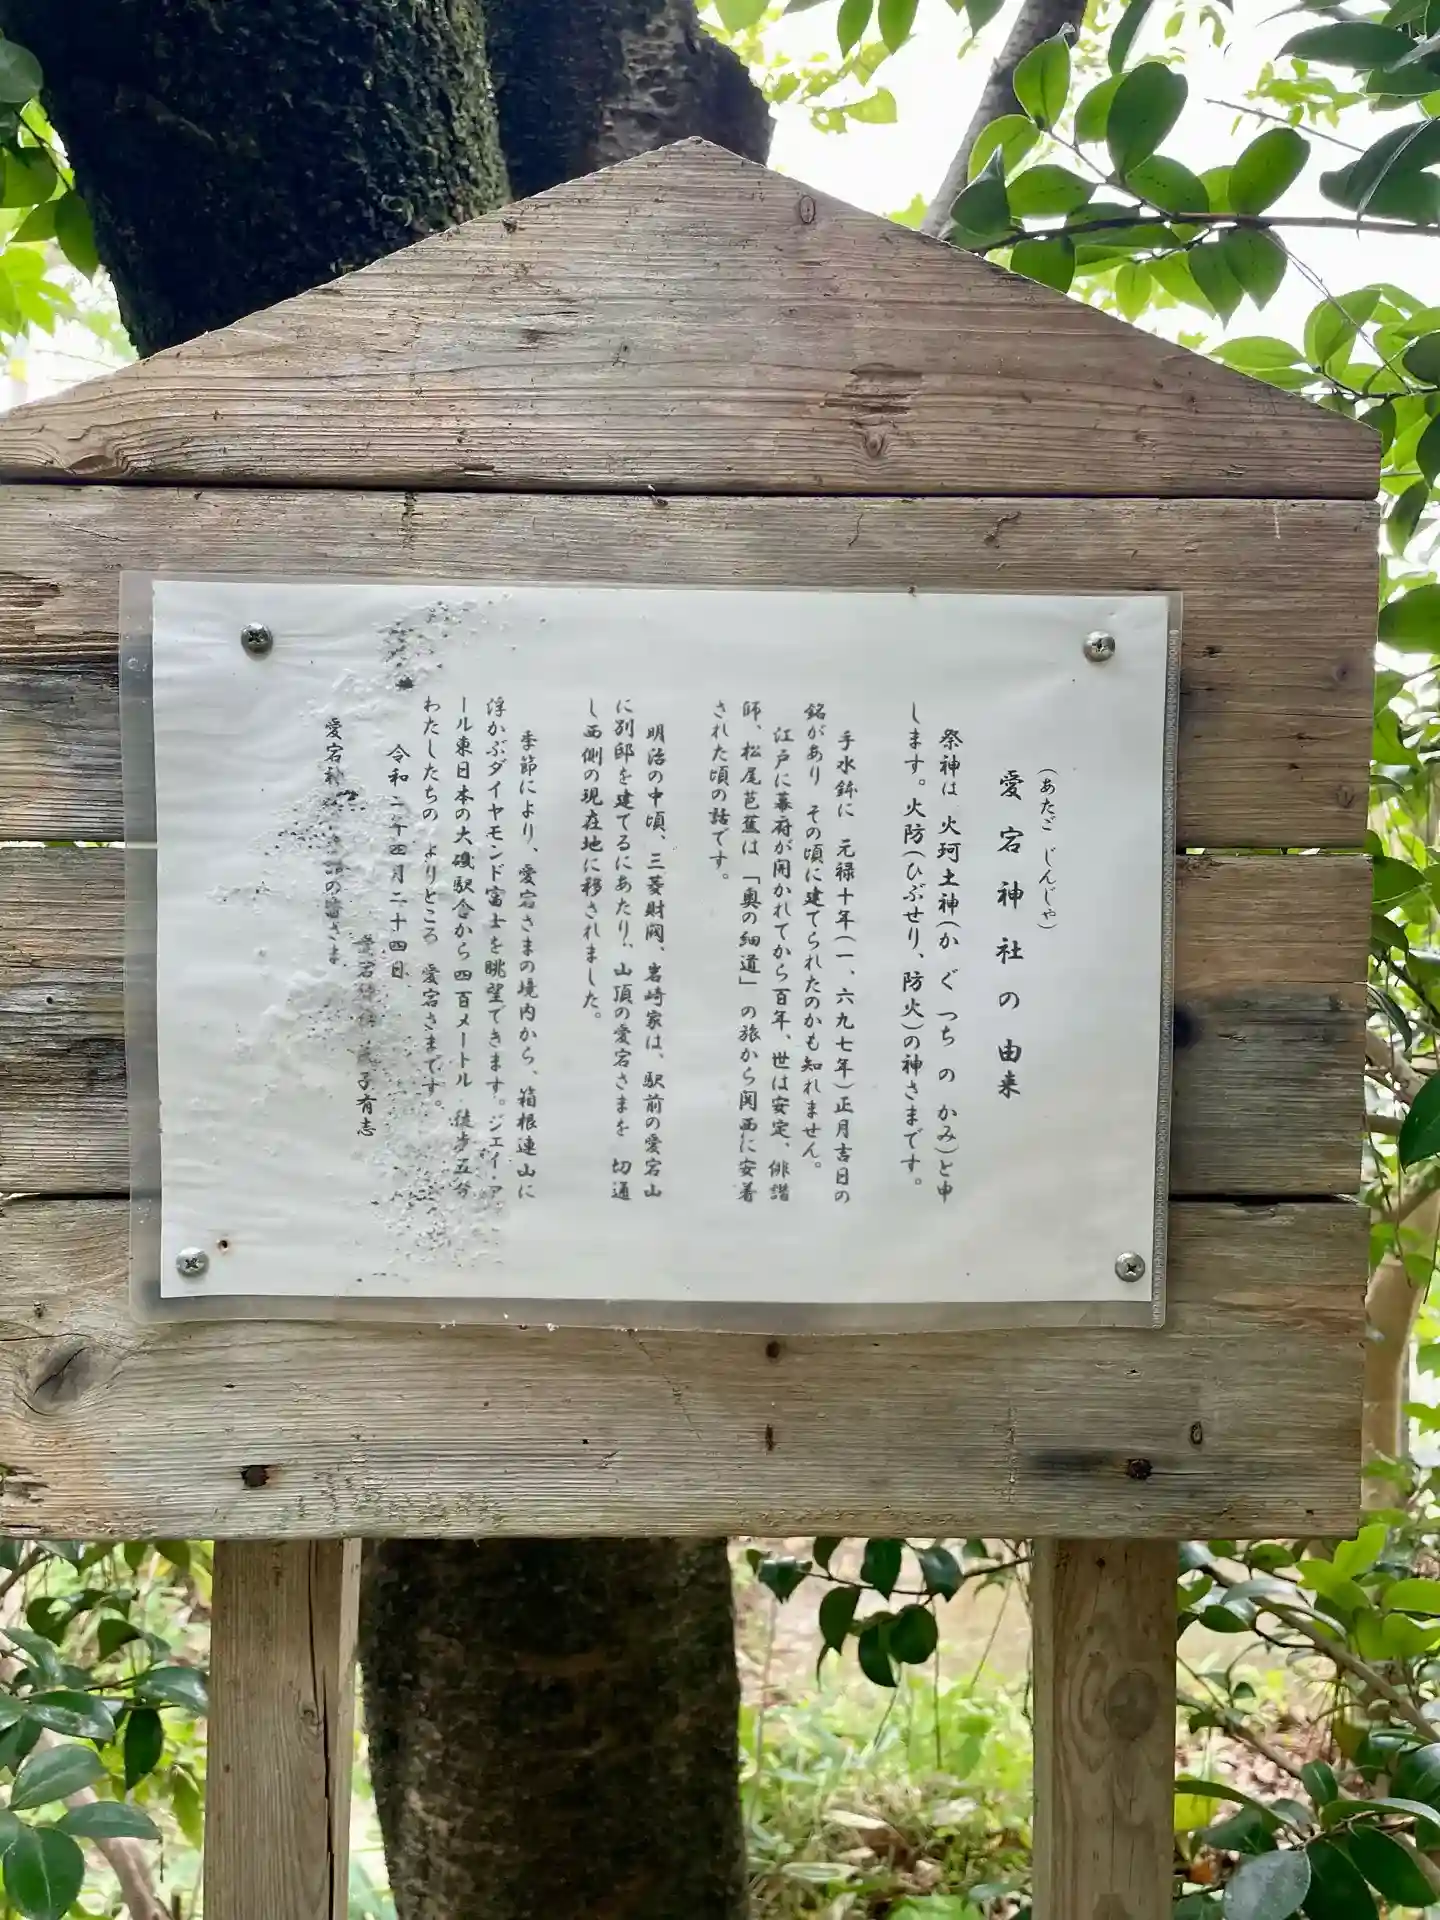 (あたご じんじゃ)
愛宕神社の由来
祭神は 火珂土神(か ぐ つち の かみ)と申
します。火防(ひぶせり、防火)の神さまです。
手水鉢に 元禄十年(一、六九七年)正月吉日の
銘があり その頃に建てられたのかも知れません。
江戸に幕府が開かれてから百年、世は安定、俳諧
師、松尾芭蕉は「奥の細道」の旅から関西に安着
された頃の話です。
明治の中頃、三菱財閥、岩崎家は、駅前の愛宕山
に別邸を建てるにあたり、山頂の愛宕さまを 切通
し西側の現在地に移されました。
季節により、愛宕さまの境内から、箱根連山に
浮かぶダイヤモンド富士を眺望できます。ジェイ・ア
ール東日本の大磯駅舎から四百メートル 徒歩五分
わたしたちの よりどころ 愛宕さまです。
令和二年四月二十四日
愛宕 子有志
愛宕神 の皆さま